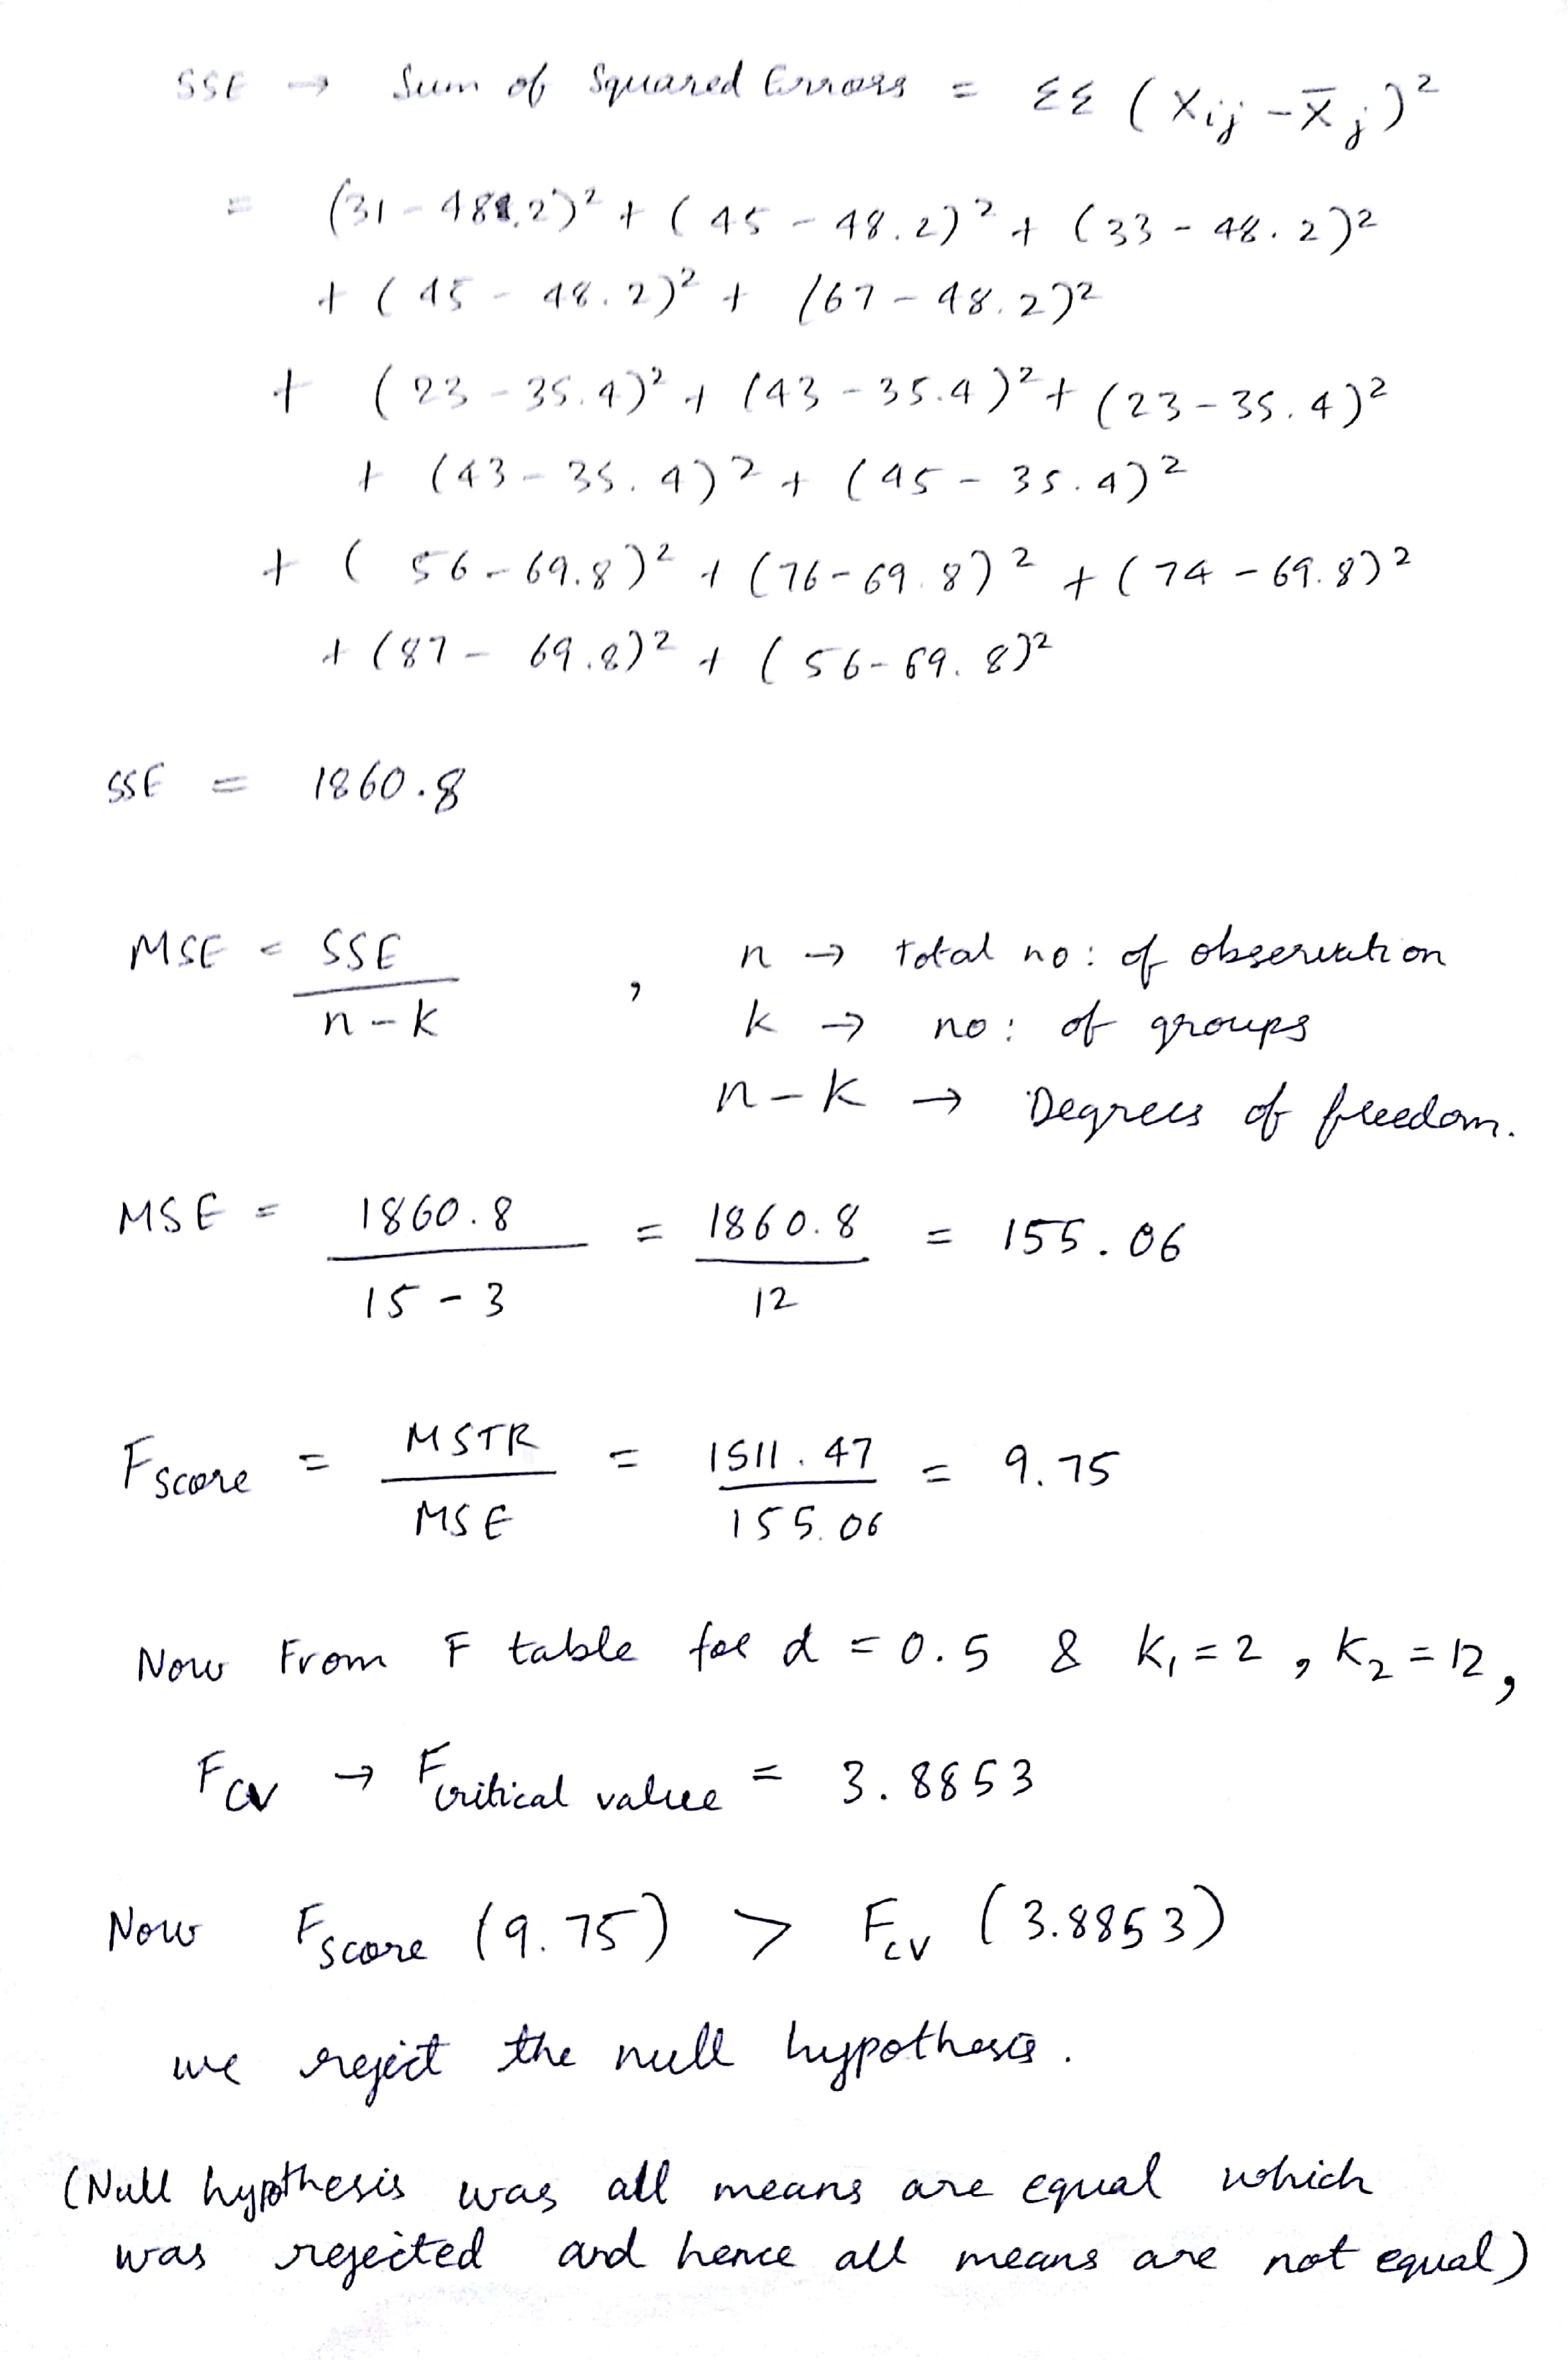 SSE → Sum of Squared Errors = ΣΣ (Xij - X̄j)²
= (31 - 48.2)² + (45 - 48.2)² + (33 - 48.2)²
+ (45 - 48.2)² + (67 - 48.2)²
+ (23 - 35.4)² + (43 - 35.4)² + (23 - 35.4)²
+ (43 - 35.4)² + (45 - 35.4)²
+ (56 - 69.8)² + (76 - 69.8)² + (74 - 69.8)²
+ (87 - 69.8)² + (56 - 69.8)²
SSE = 1860.8
MSE = SSE / n - k , n → total no: of observation
k → no: of groups
n - k → Degrees of freedom.
MSE = 1860.8 / 15 - 3 = 1860.8 / 12 = 155.06
Fscore = MSTR / MSE = 1511.47 / 155.06 = 9.75
Now From F table for α = 0.5 & K₁ = 2 , K₂ = 12,
Fcv → Fcritical value = 3.8853
Now Fscore (9.75) > Fcv (3.8853)
we reject the null hypothesis.
(Null hypothesis was all means are equal which
was rejected and hence all means are not equal)